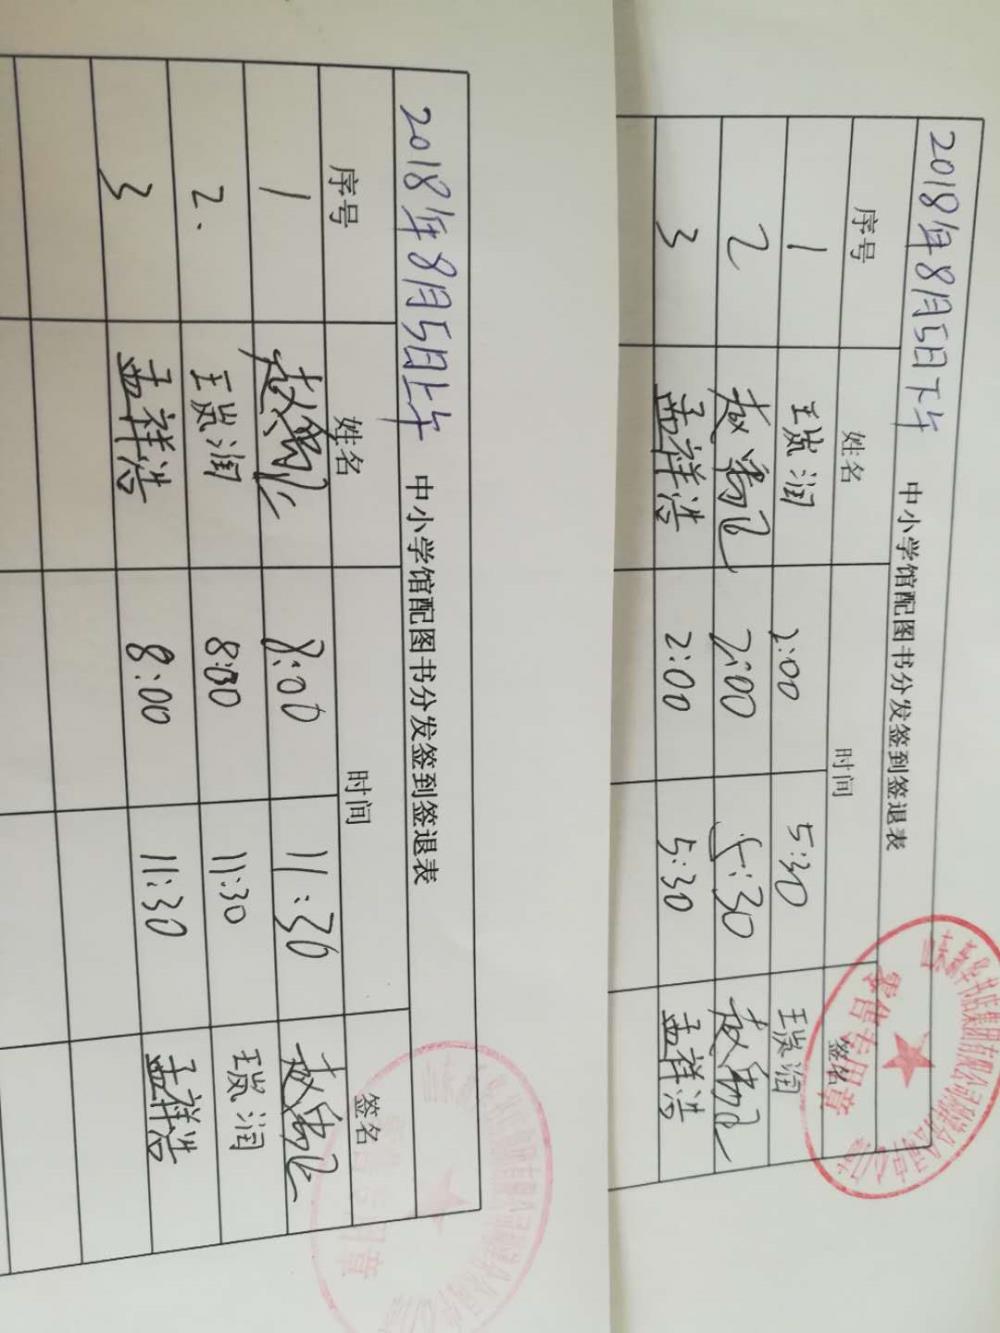 2018年8月5日上午
中小学馆配图书分发签到签退表
序号 姓名 时间 签名
1 8:00 11:30
2. 王岚润 8:00 11:30 王岚润
3 孟祥浩 8:00 11:30 孟祥浩
2018年8月5日下午
中小学馆配图书分发签到签退表
序号 姓名 时间 签名
1 王岚润 2:00 5:30 王岚润
2 2:00 5:30
3 孟祥浩 2:00 5:30 孟祥浩
零售专用章